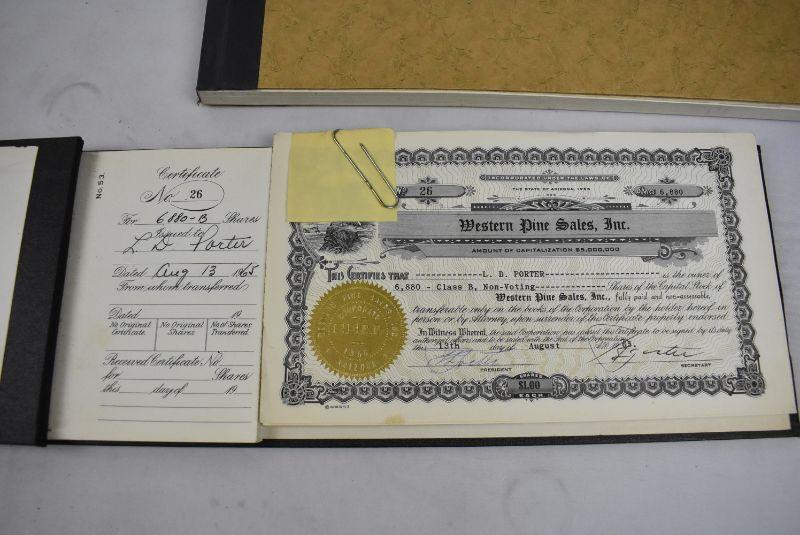 No. 53.
Certificate
No. 26
For 6880-B Shares
Issued to
L. D. Porter
Dated Aug 13 1965
From whom transferred
Dated 19
No Original Certificate.
No Original Shares
No of Shares Transferred.
Received Certificate No
for Shares
this day of 19
INCORPORATED UNDER THE LAWS OF
THE STATE OF ARIZONA, 1955
26
6,880
Western Pine Sales, Inc.
AMOUNT OF CAPITALIZATION $5,000,000
THIS CERTIFIES THAT L. D. PORTER is the owner of
6,880 - Class B, Non-Voting Shares of the Capital Stock of
Western Pine Sales, Inc., fully paid and non-assessable,
transferable only on the books of the Corporation by the holder hereof in
person or by Attorney, upon surrender of this Certificate properly endorsed.
In Witness Whereof, the said Corporation has caused this Certificate to be signed by its duly
authorized officers and to be sealed with the Seal of the Corporation
this 13th day of August
PRESIDENT
SECRETARY
SHARES
$1.00
EACH